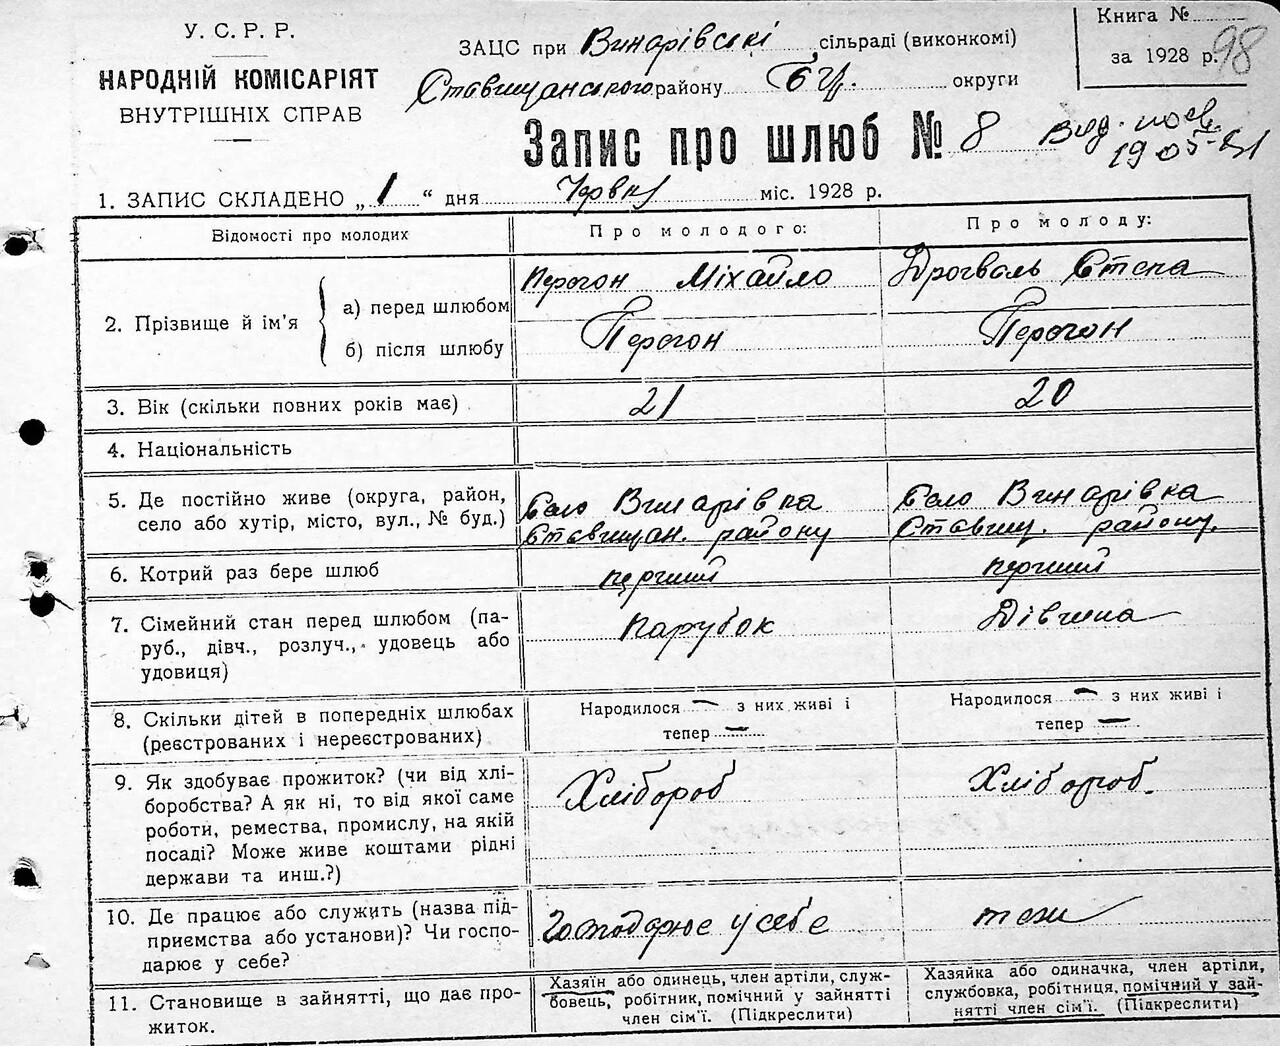 У. С. Р. Р.
НАРОДНІЙ КОМІСАРІЯТ
ВНУТРІШНІХ СПРАВ
ЗАЦС при Винарівські сільраді (виконкомі)
Ставищанського району Б Ц. округи
Книга №
за 1928 р. 98
Запис про шлюб № 8
Вид.
1. ЗАПИС СКЛАДЕНО „1“ дня Червня міс. 1928 р.
Відомості про молодих
Про молодого:
Про молоду:
2. Прізвище й ім’я
а) перед шлюбом
Перогон Міхайло
Дрогваль Степа
б) після шлюбу
Перогон
Перогон
3. Вік (скільки повних років має)
21
20
4. Національність
5. Де постійно живе (округа, район,
село або хутір, місто, вул., № буд.)
Село Винарівка
Ставищан. району
Село Винарівка
Ставищ. району.
6. Котрий раз бере шлюб
перший
перший
7. Сімейний стан перед шлюбом (па-
руб., дівч., розлуч., удовець або
удовиця)
Парубок
Дівчина
8. Скільки дітей в попередніх шлюбах
(реєстрованих і нереєстрованих)
Народилося — з них живі і
тепер —
Народилося — з них живі і
тепер —
9. Як здобуває прожиток? (чи від хлі-
боробства? А як ні, то від якої саме
роботи, ремества, промислу, на якій
посаді? Може живе коштами рідні
держави та инш.?)
Хлібороб
Хлібороб.
10. Де працює або служить (назва під-
приємства або установи)? Чи госпо-
дарює у себе?
Господарює у себе
теж
11. Становище в зайнятті, що дає про-
житок.
Хазяїн або одинець, член артілі, служ-
бовець, робітник, помічний у зайнятті
член сім’ї. (Підкреслити)
Хазяйка або одиначка, член артіли,
службовка, робітниця, помічний у зай-
нятті член сім’ї. (Підкреслити)